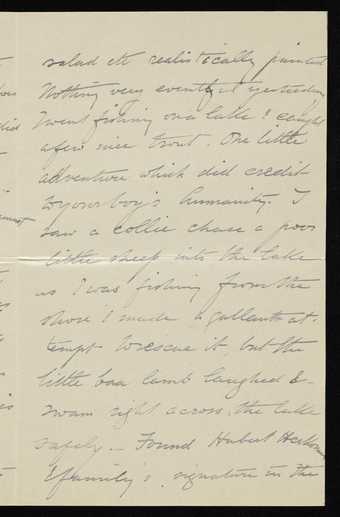 salad etc realistically painted
Nothing very eventful yesterday
I went fishing on a lake & caught
a few nice trout. One little
adventure which did credit
to your boy's humanity. I
saw a collie chase a poor
little sheep into the lake
as I was fishing from the
shore I made a gallant at-
tempt to rescue it, but the
little baa lamb laughed &
swam right across the lake
safely. – Found Hubert
& family's signature in the